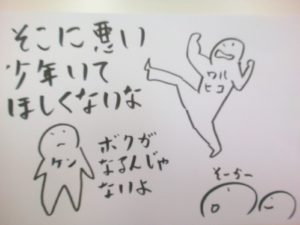 そこに悪い
少年いて
ほしくないな
ワル
ヒコ
ケン
ボクが
なるんじゃ
ないよ
そーちー